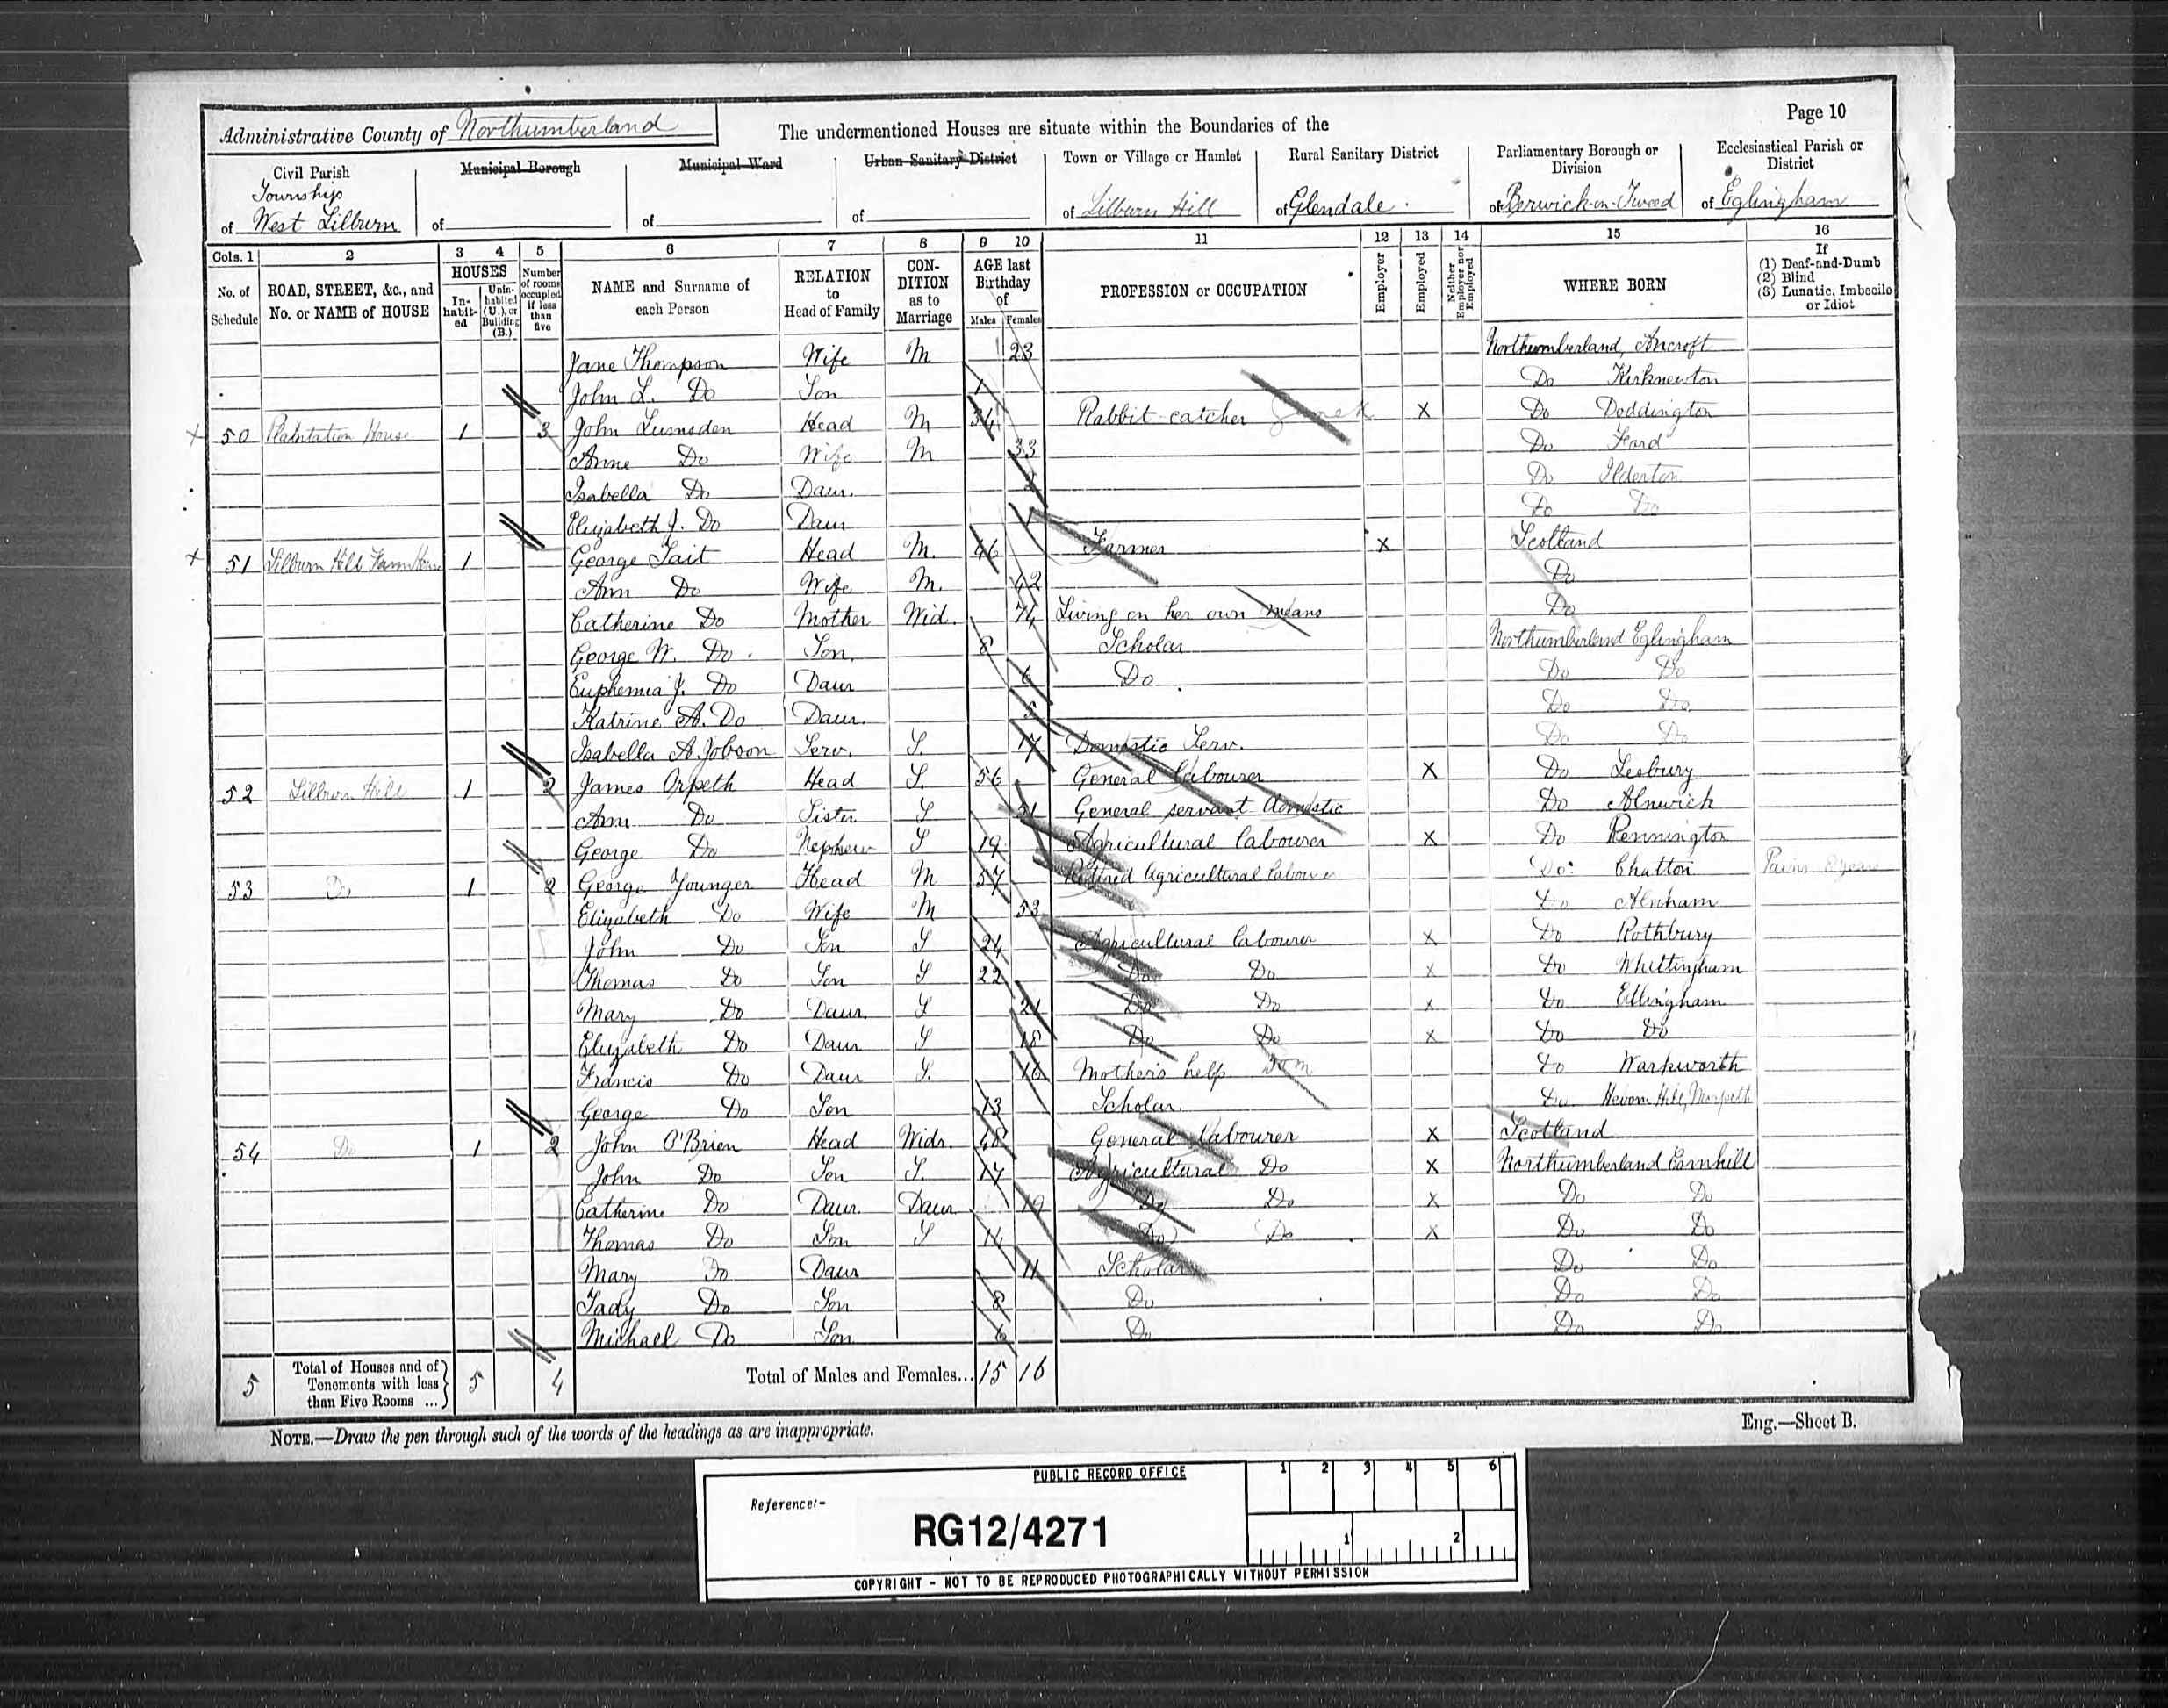 Page 10
Administrative County of Northumberland
The undermentioned Houses are situate within the Boundaries of the
Civil Parish Township of West Lilburn
Municipal Borough of
Municipal Ward of
Urban Sanitary District of
Town or Village or Hamlet of Lilburn Hill
Rural Sanitary District of Glendale.
Parliamentary Borough or Division of Berwick-on-Tweed
Ecclesiastical Parish or District of Eglingham
Cols. 1 2 3 4 5 6 7 8 9 10 11 12 13 14 15 16
No. of Schedule
ROAD, STREET, &c., and No. or NAME of HOUSE
HOUSES
Inhabited
Uninhabited (U.), or Building (B.)
Number of rooms occupied if less than five
NAME and Surname of each Person
RELATION to Head of Family
CONDITION as to Marriage
AGE last Birthday of
Males Females
PROFESSION or OCCUPATION
Employer
Employed
Neither Employer nor Employed
WHERE BORN
If (1) Deaf-and-Dumb (2) Blind (3) Lunatic, Imbecile or Idiot
Jane Thompson Wife M 23 Northumberland, Ancroft
John L. Do Son 1 Do Kirknewton
50 Plantation House 1 3 John Lumsden Head M 34 Rabbit-catcher X Do Doddington
Anne Do Wife M 33 Do Ford
Isabella Do Daur. Do Ilderton
Elizabeth J. Do Daur 1 Do Do
51 Lilburn Hill Farm House 1 George Tait Head M. 46 Farmer X Scotland
Ann Do Wife M. 42 Do
Catherine Do Mother Wid. 74 Living on her own means Do
George W. Do Son. 8 Scholar Northumberland Eglingham
Euphemia J. Do Daur 6 Do Do Do
Katrine A. Do Daur. 5 Do Do
Isabella A. Jobson Serv. S. 17 Domestic Serv. Do Do
52 Lilburn Hill 1 2 James Orpeth Head S. 56 General labourer X Do Lesbury
Ann Do Sister S 51 General servant domestic Do Alnwick
George Do Nephew S 19 Agricultural labourer X Do Rennington
53 Do 1 2 George Younger Head M 57 Retired Agricultural labourer Do Chatton
Elizabeth Do Wife M 53 Do Alnham
John Do Son S 24 Agricultural labourer X Do Rothbury
Thomas Do Son S 22 Do Do X Do Whittingham
Mary Do Daur. S 21 Do Do X Do Ellingham
Elizabeth Do Daur S 18 Do Do X Do Do
Francis Do Daur S. 16 Mother's help Dom Do Warkworth
George Do Son 13 Scholar. Do Hill, Morpeth
54 Do 1 2 John O'Brien Head Widr. 48 General labourer X Scotland
John Do Son S. 17 Agricultural Do X Northumberland Cornhill
Catherine Do Daur Daur 19 Do Do X Do Do
Thomas Do Son S 14 Do Do X Do Do
Mary Do Daur 11 Scholar Do Do
Tady Do Son 8 Do Do Do
Michael Do Son 6 Do Do Do
5 Total of Houses and of Tenements with less than Five Rooms ... 5 4 Total of Males and Females... 15 16
NOTE.—Draw the pen through such of the words of the headings as are inappropriate.
Eng.—Sheet B.
PUBLIC RECORD OFFICE
1 2 3 4 5 6
Reference:-
RG12/4271
1 2
COPYRIGHT - NOT TO BE REPRODUCED PHOTOGRAPHICALLY WITHOUT PERMISSION